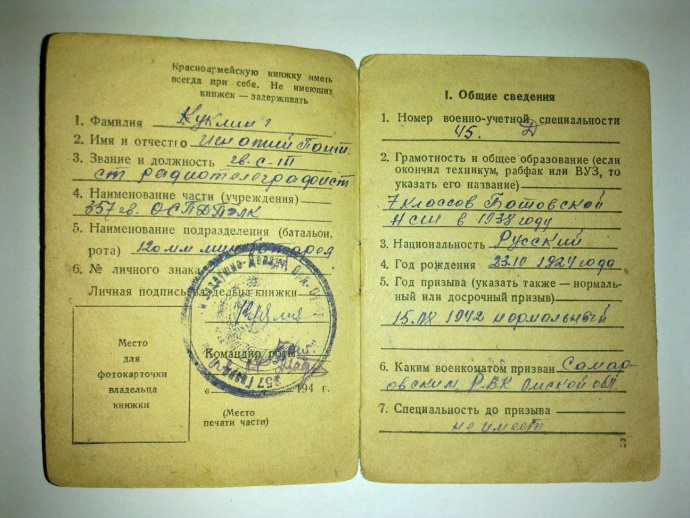 Красноармейскую книжку иметь
всегда при себе. Не имеющих
книжек — задерживать
1. Фамилия Куклин
2. Имя и отчество Игнатий Пант.
3. Звание и должность гв. с-т
ст радиотелеграфист
4. Наименование части (учреждения)
357 гв.
5. Наименование подразделения (батальон,
рота) 120 мм
6. № личного знака
Личная подпись владельца книжки
Командир роты
194 г.
(Место
печати части)
Место
для
фотокарточки
владельца
книжки
I. Общие сведения
1. Номер военно-учетной специальности
45.
2. Грамотность и общее образование (если
окончил техникум, рабфак или ВУЗ, то
указать его название)
7 классов Батовской
НСШ в 1938 году
3. Национальность Русский
4. Год рождения 23.10 1924 года
5. Год призыва (указать также — нормаль-
ный или досрочный призыв)
15.08 1942 нормальный
6. Каким военкоматом призван Самар-
овским РВК Омской обл
7. Специальность до призыва
не имеет
3